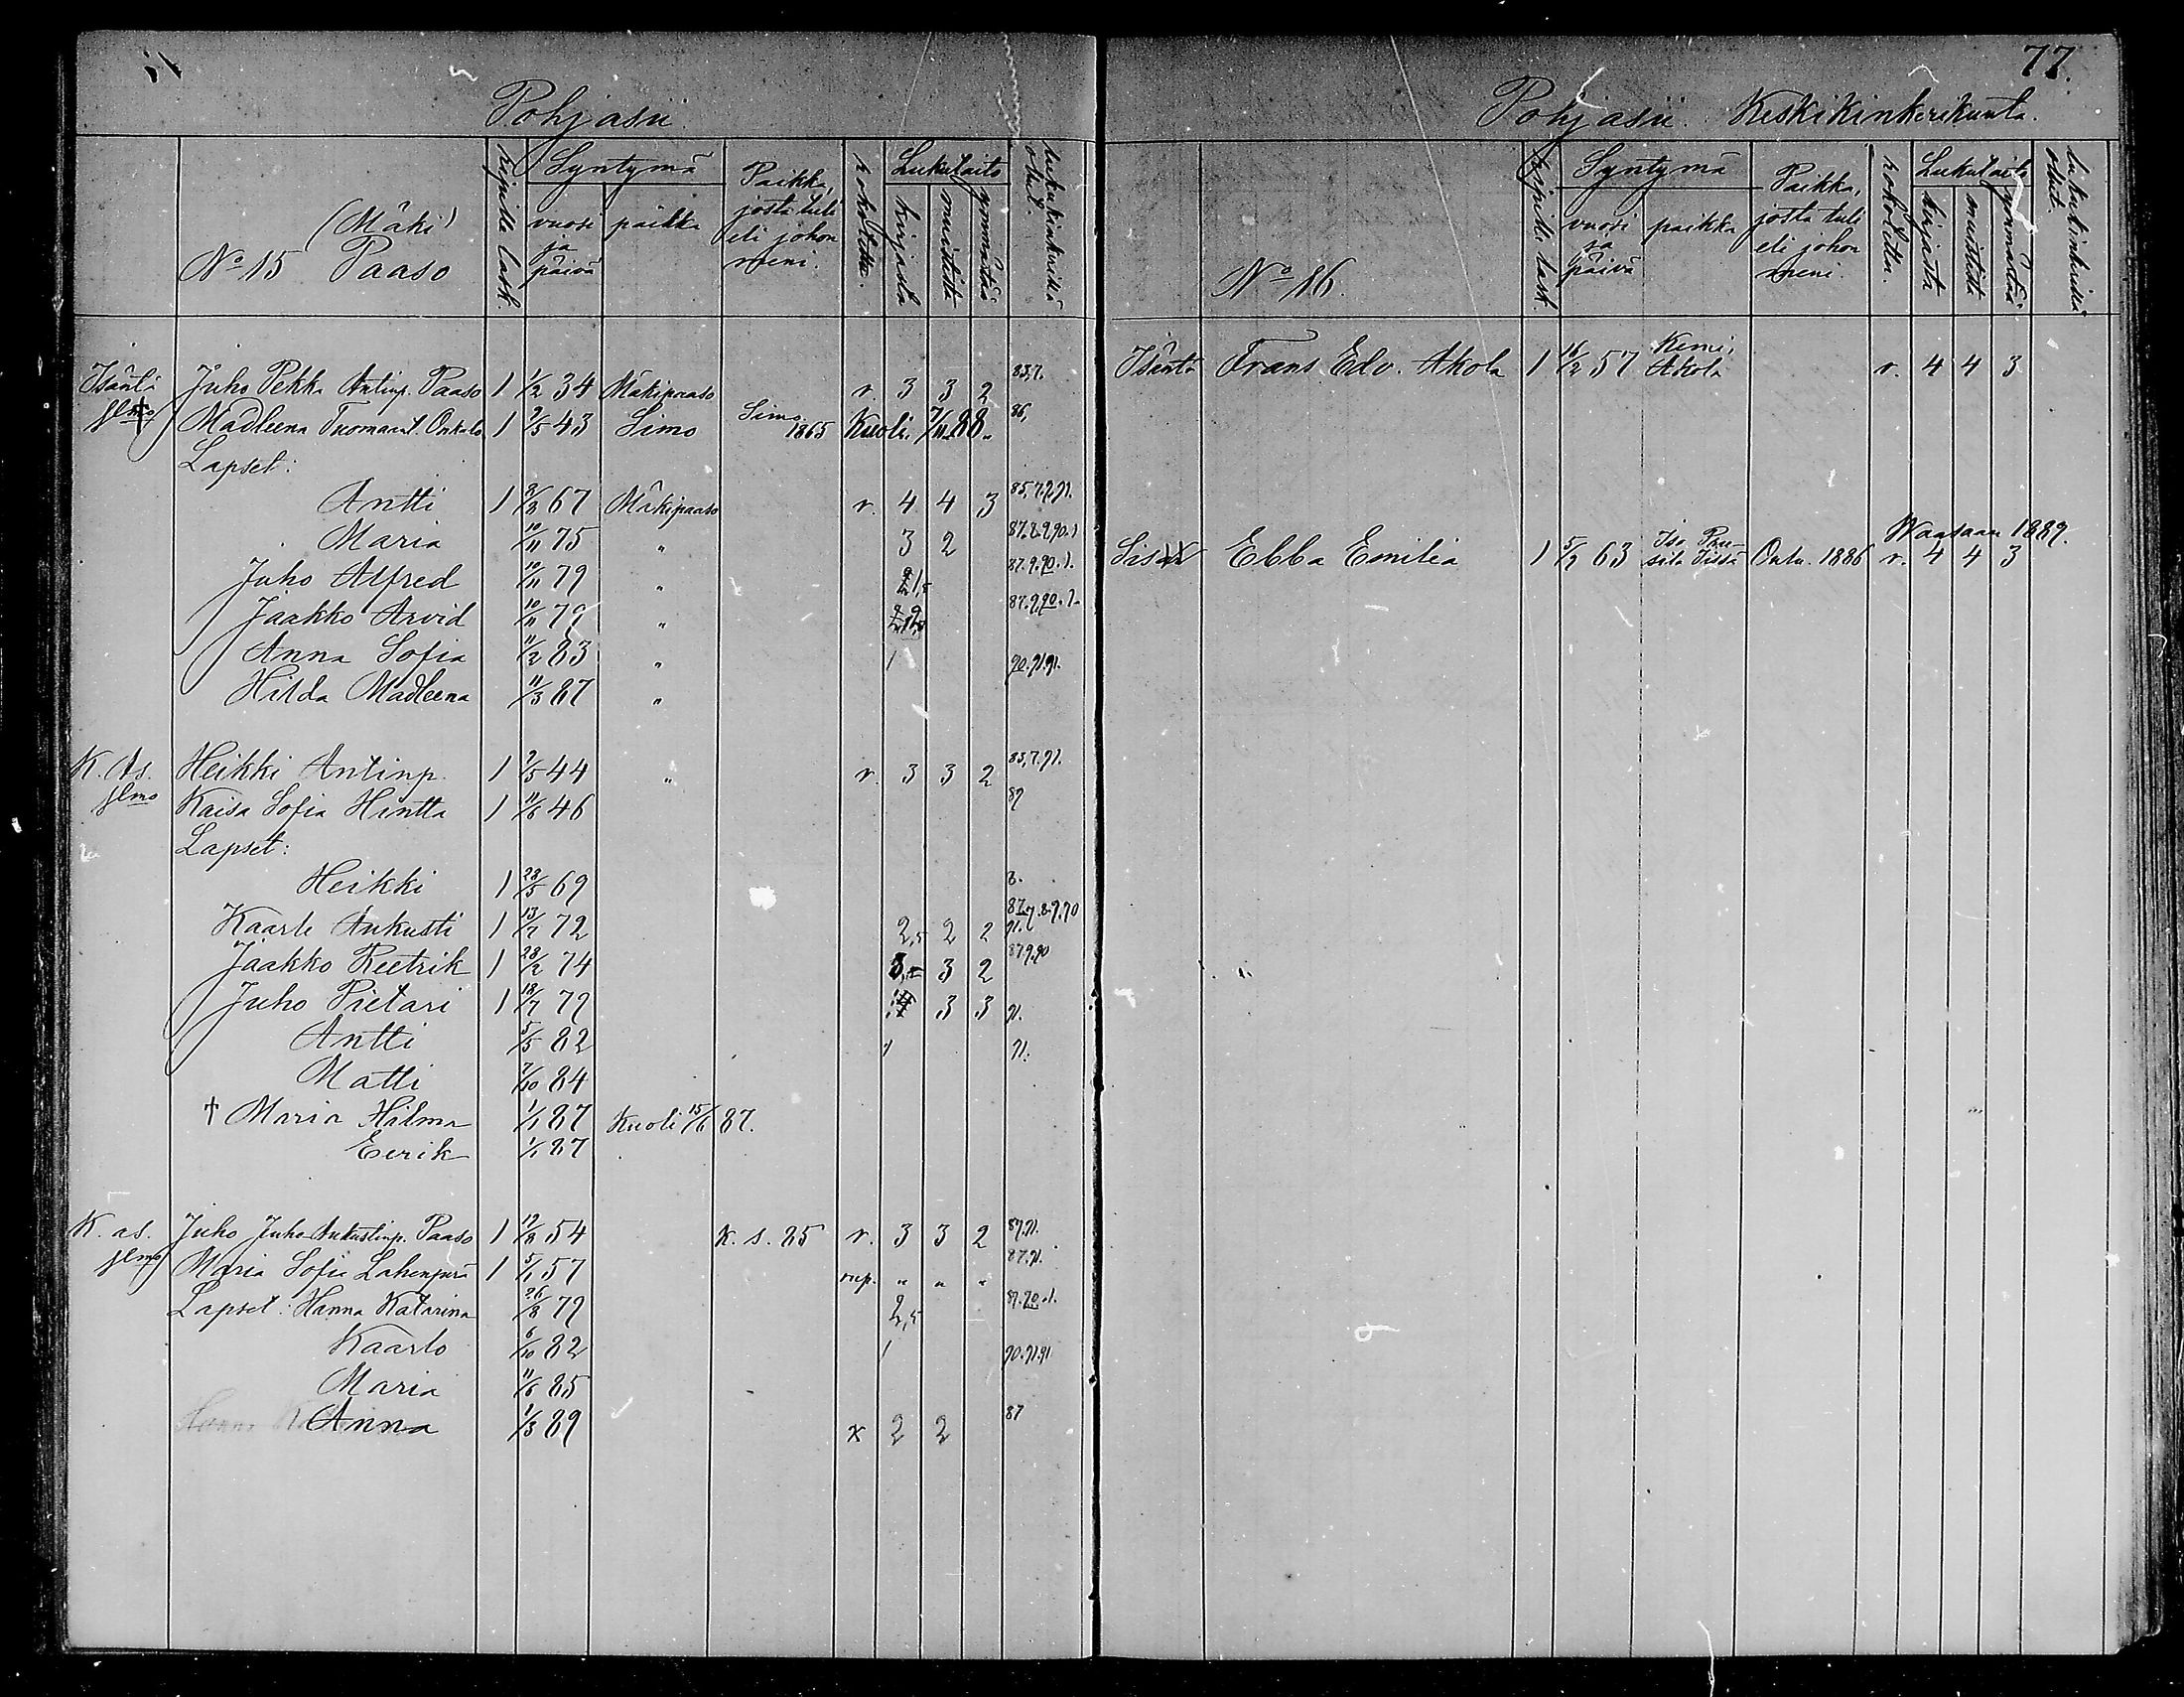 Pohjasii
(Mäki)
No 15 Paaso
ripille lask.
Syntymä
vuosi ja päivä
paikka
Paikka, josta tuli eli johon meni.
rokotettu.
Lukutaito
kirjasta
muistista
ymmärtää
lukukinkerillä ollut.
Isäntä Juho Pekka Antinp. Paaso 1 1/2 34 Mäkipaaso r. 3 3 2 83,7.
Madleena Tuomaant. Onkalo 1 9/5 43 Simo Simo 1865 Kuoli 7/11 88. 86,
Lapset:
Antti 1 8/3 67 Mäkipaaso r. 4 4 3 85,7.9,91.
Maria 10/11 75 " 3 2 87.8.9,90.1
Juho Alfred 10/11 79 " 87.9.90.1.
Jaakko Arvid 10/11 79 " 87.9,90.1.
Anna Sofia 11/2 83 " 1 90.91.91.
Hilda Madleena 11/3 87 "
K. As. Heikki Antinp. 1 2/5 44 " r. 3 3 2 85,7.91.
Kaisa Sofia Hintta 1 11/6 46 87
Lapset:
Heikki 1 28/5 69 8.
Kaarle Aukusti 1 13/7 72 2,5 2 2
Jaakko Reetrik 1 28/2 74 3 2 87.9.90
Juho Pietari 1 18/7 79 3 3 91.
Antti 5/5 82 1 91.
Matti 7/10 84
† Maria Hilma 1/1 87 Kuoli 15/6 87.
Eerik 1/1 87
K. as. Juho Juho Aukustinp. Paaso 1 19/8 54 K. s. 85 r. 3 3 2 87,91.
Maria Sofia Lahenperä 1 5/1 57 rup. " " " 87.91.
Lapset: Hanna Katarina 26/8 79 2,5 87.90.1.
Kaarlo 6/10 82 1 90.91.91
Maria 11/6 85
Anna 1/3 89 x 2 2 87
77.
Pohjasii. Keskikinkerikunta.
No 16.
ripille lask.
Syntymä
vuosi ja päivä
paikka
Paikka, josta tuli eli johon meni.
rokotettu.
Lukutaito
kirjasta
muistista
ymmärtää
lukukinkerillä ollut.
Isäntä Frans Edv. Akola 1 16/2 57 Kemi, Akola r. 4 4 3
Waasaan 1889.
Ebba Emilia 1 5/7 63 Oulu. 1886 r. 4 4 3